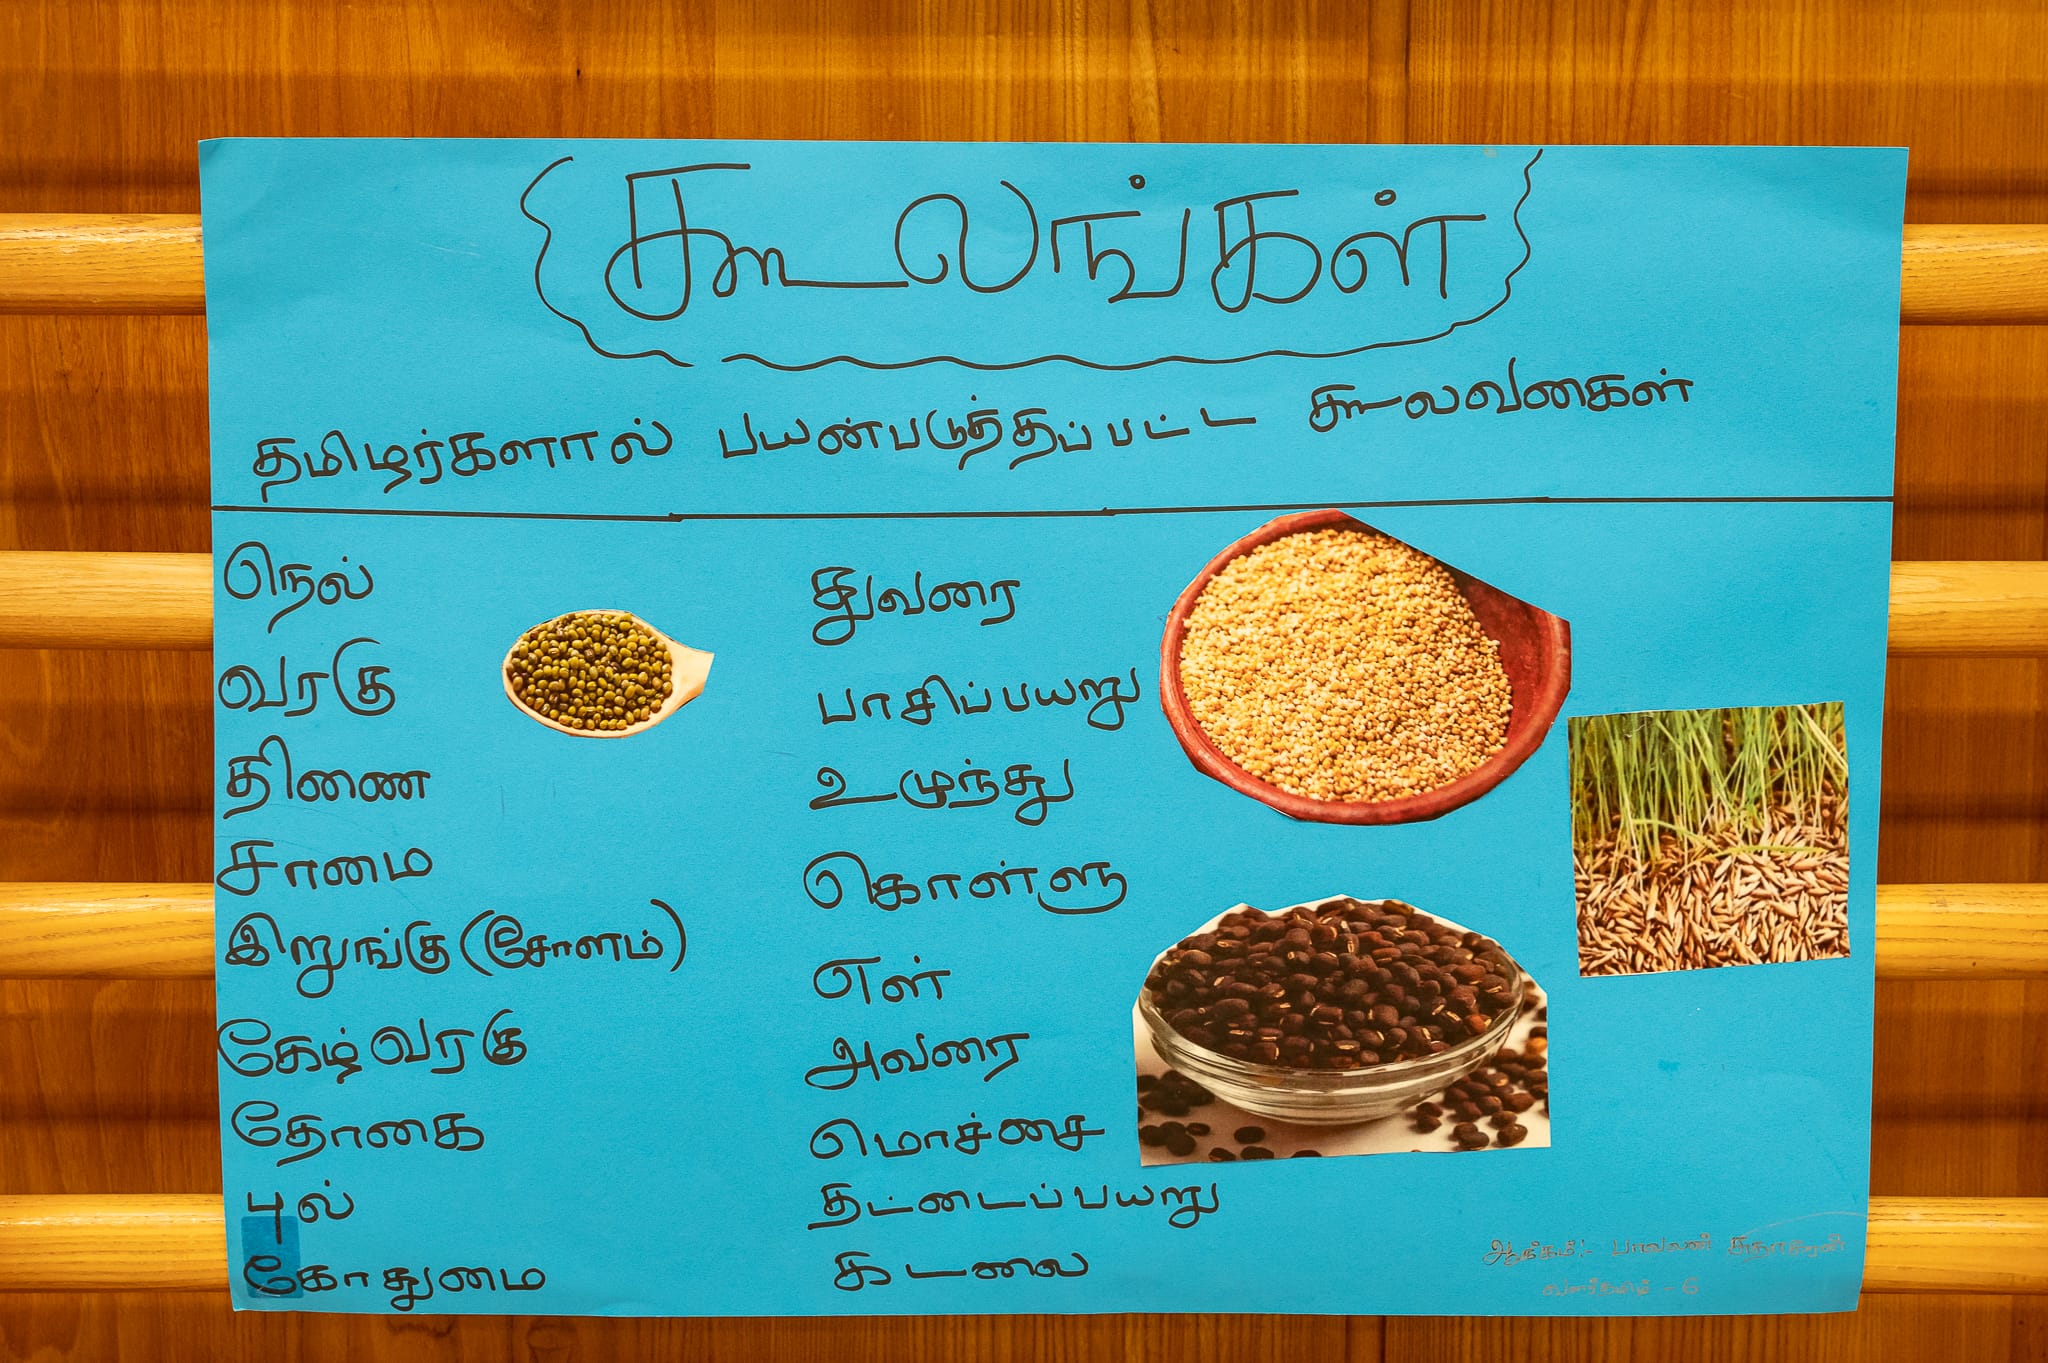 கூலங்கள்
தமிழர்களால் பயன்படுத்தப்பட்ட கூலவகைகள்
நெல்
வரகு
திணை
சாமை
இறுங்கு (சோளம்)
கேழ்வரகு
தோகை
புல்
கோதுமை
துவரை
பாசிப்பயறு
உழுந்து
கொள்ளு
எள்
அவரை
மொச்சை
தட்டைப்பயறு
கடலை
ஆக்கம்:- பாவலன்
வளர்தமிழ் - 6